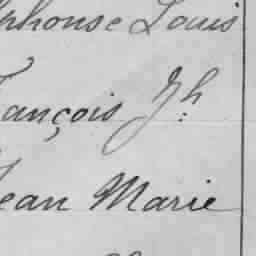 lphonse Louis
rançois Jh:
Jean Marie